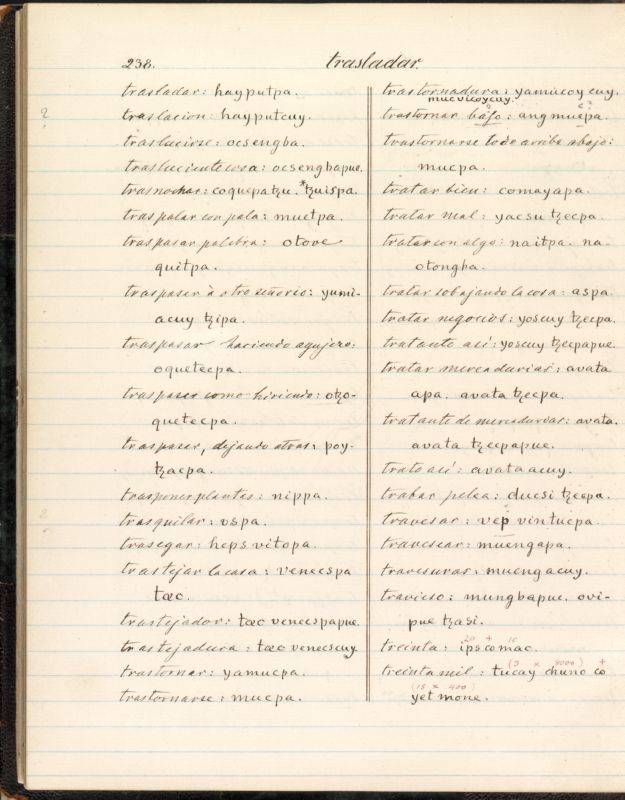 238.
trasladar.
trasladar: hayputpa.
traslacion: hayputcuy.
traslucirse: ocsengba.
trasluciente cosa: ocsengbapue.
trasnochar: coquepatzu. *tzuispa.
traspalar con pala: muetpa.
traspasar palabra: otove
quitpa.
traspasar à otro señorio: yumi-
acuy tzipa.
traspasar haciendo agujero:
oquetecpa.
traspasar como hiriendo: otzo-
quetecpa.
traspasar, dejando atras: poy-
tzacpa.
trasponer plantas: nippa.
trasquilar: vspa.
trasegar: heps vitopa.
trastejar la casa: venecspa
tæc.
trastejador: tæc venecspapue.
trastejadura: tæc venecscuy.
trastornar: yamucpa.
trastornarse: mucpa.
trastornadura: yamucoy cuy.
muevicoycuy.
trastornar bajo: angmuepa.
trastornarse lo de arriba abajo:
mucpa.
tratar bien: comayapa.
tratar mal: yacsu tzecpa.
tratar con algo: naitpa. na-
otongba.
tratar sobajando la cosa: aspa.
tratar negocios: yoscuy tzecpa.
tratante asi: yoscuy tzecpapue.
tratar mercadurias: avata
apa. avata tzecpa.
tratante de mercadurias: avata.
avata tzecpapue.
trato asi: avata acuy.
trabar pelea: ducsi tzecpa.
travesar: vep vintucpa.
travesear: muengapa.
travesuras: muengacuy.
travieso: mungbapue. ovi-
pue tzasi.
20 + 10
treinta: ips comac.
(3 x 8000) +
treinta mil: tucay chuno co
(15 x 400)
yet mone.